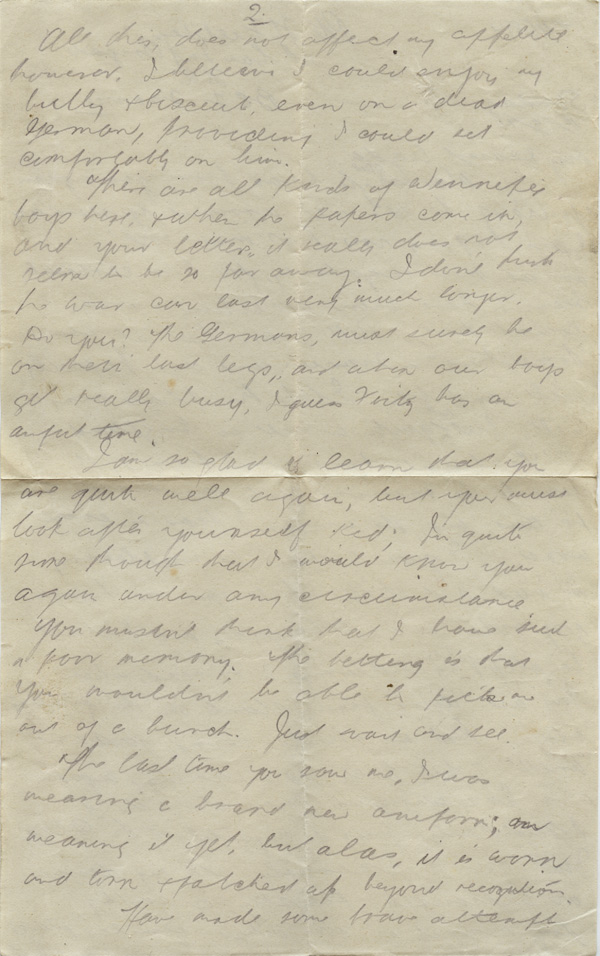 2.
All this, does not affect my appetite
however. I believe I could enjoy my
bully & biscuit, even on a dead
German, providing I could sit
comfortably on him.
There are all kinds of Winnipeg
boys here, & when the papers come in,
and your letters, it really does not
seem to be so far away. I don't think
the war can last very much longer.
Do you? The Germans, must surely be
on their last legs, and when our boys
get really busy, I guess Fritz has an
awful time.
I am so glad to learn that you
are quite well again, but you must
look after yourself kid; I'm quite
sure though that I would know you
again under any circumstance
You mustn't think that I have such
a poor memory. The betting is that
you wouldn't be able to pick me
out of a bunch. Just wait and see.
The last time you saw me, I was
wearing a brand new uniform; am
wearing it yet, but alas, it is worn
and torn & patched up beyond recognition.
Have made some brave attempt